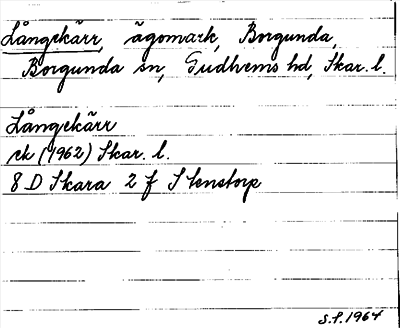 Långekärr, ägomark, Borgunda,
Borgunda sn, Gudhems hd, Skar. l.
Långekärr
ek (1962) Skar. l.
8 D Skara 2 f Stenstorp
S.F. 1964